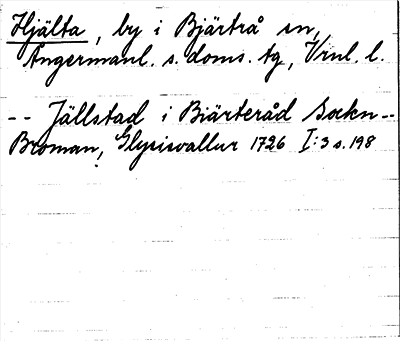 Hjälta, by i Bjärtrå sn,
Ångermanl. s. doms. tg, Vrnl. l.
-- Jällstad i Biärteråd Sockn--
Broman, Glysisvallur 1726 I:3 s. 198